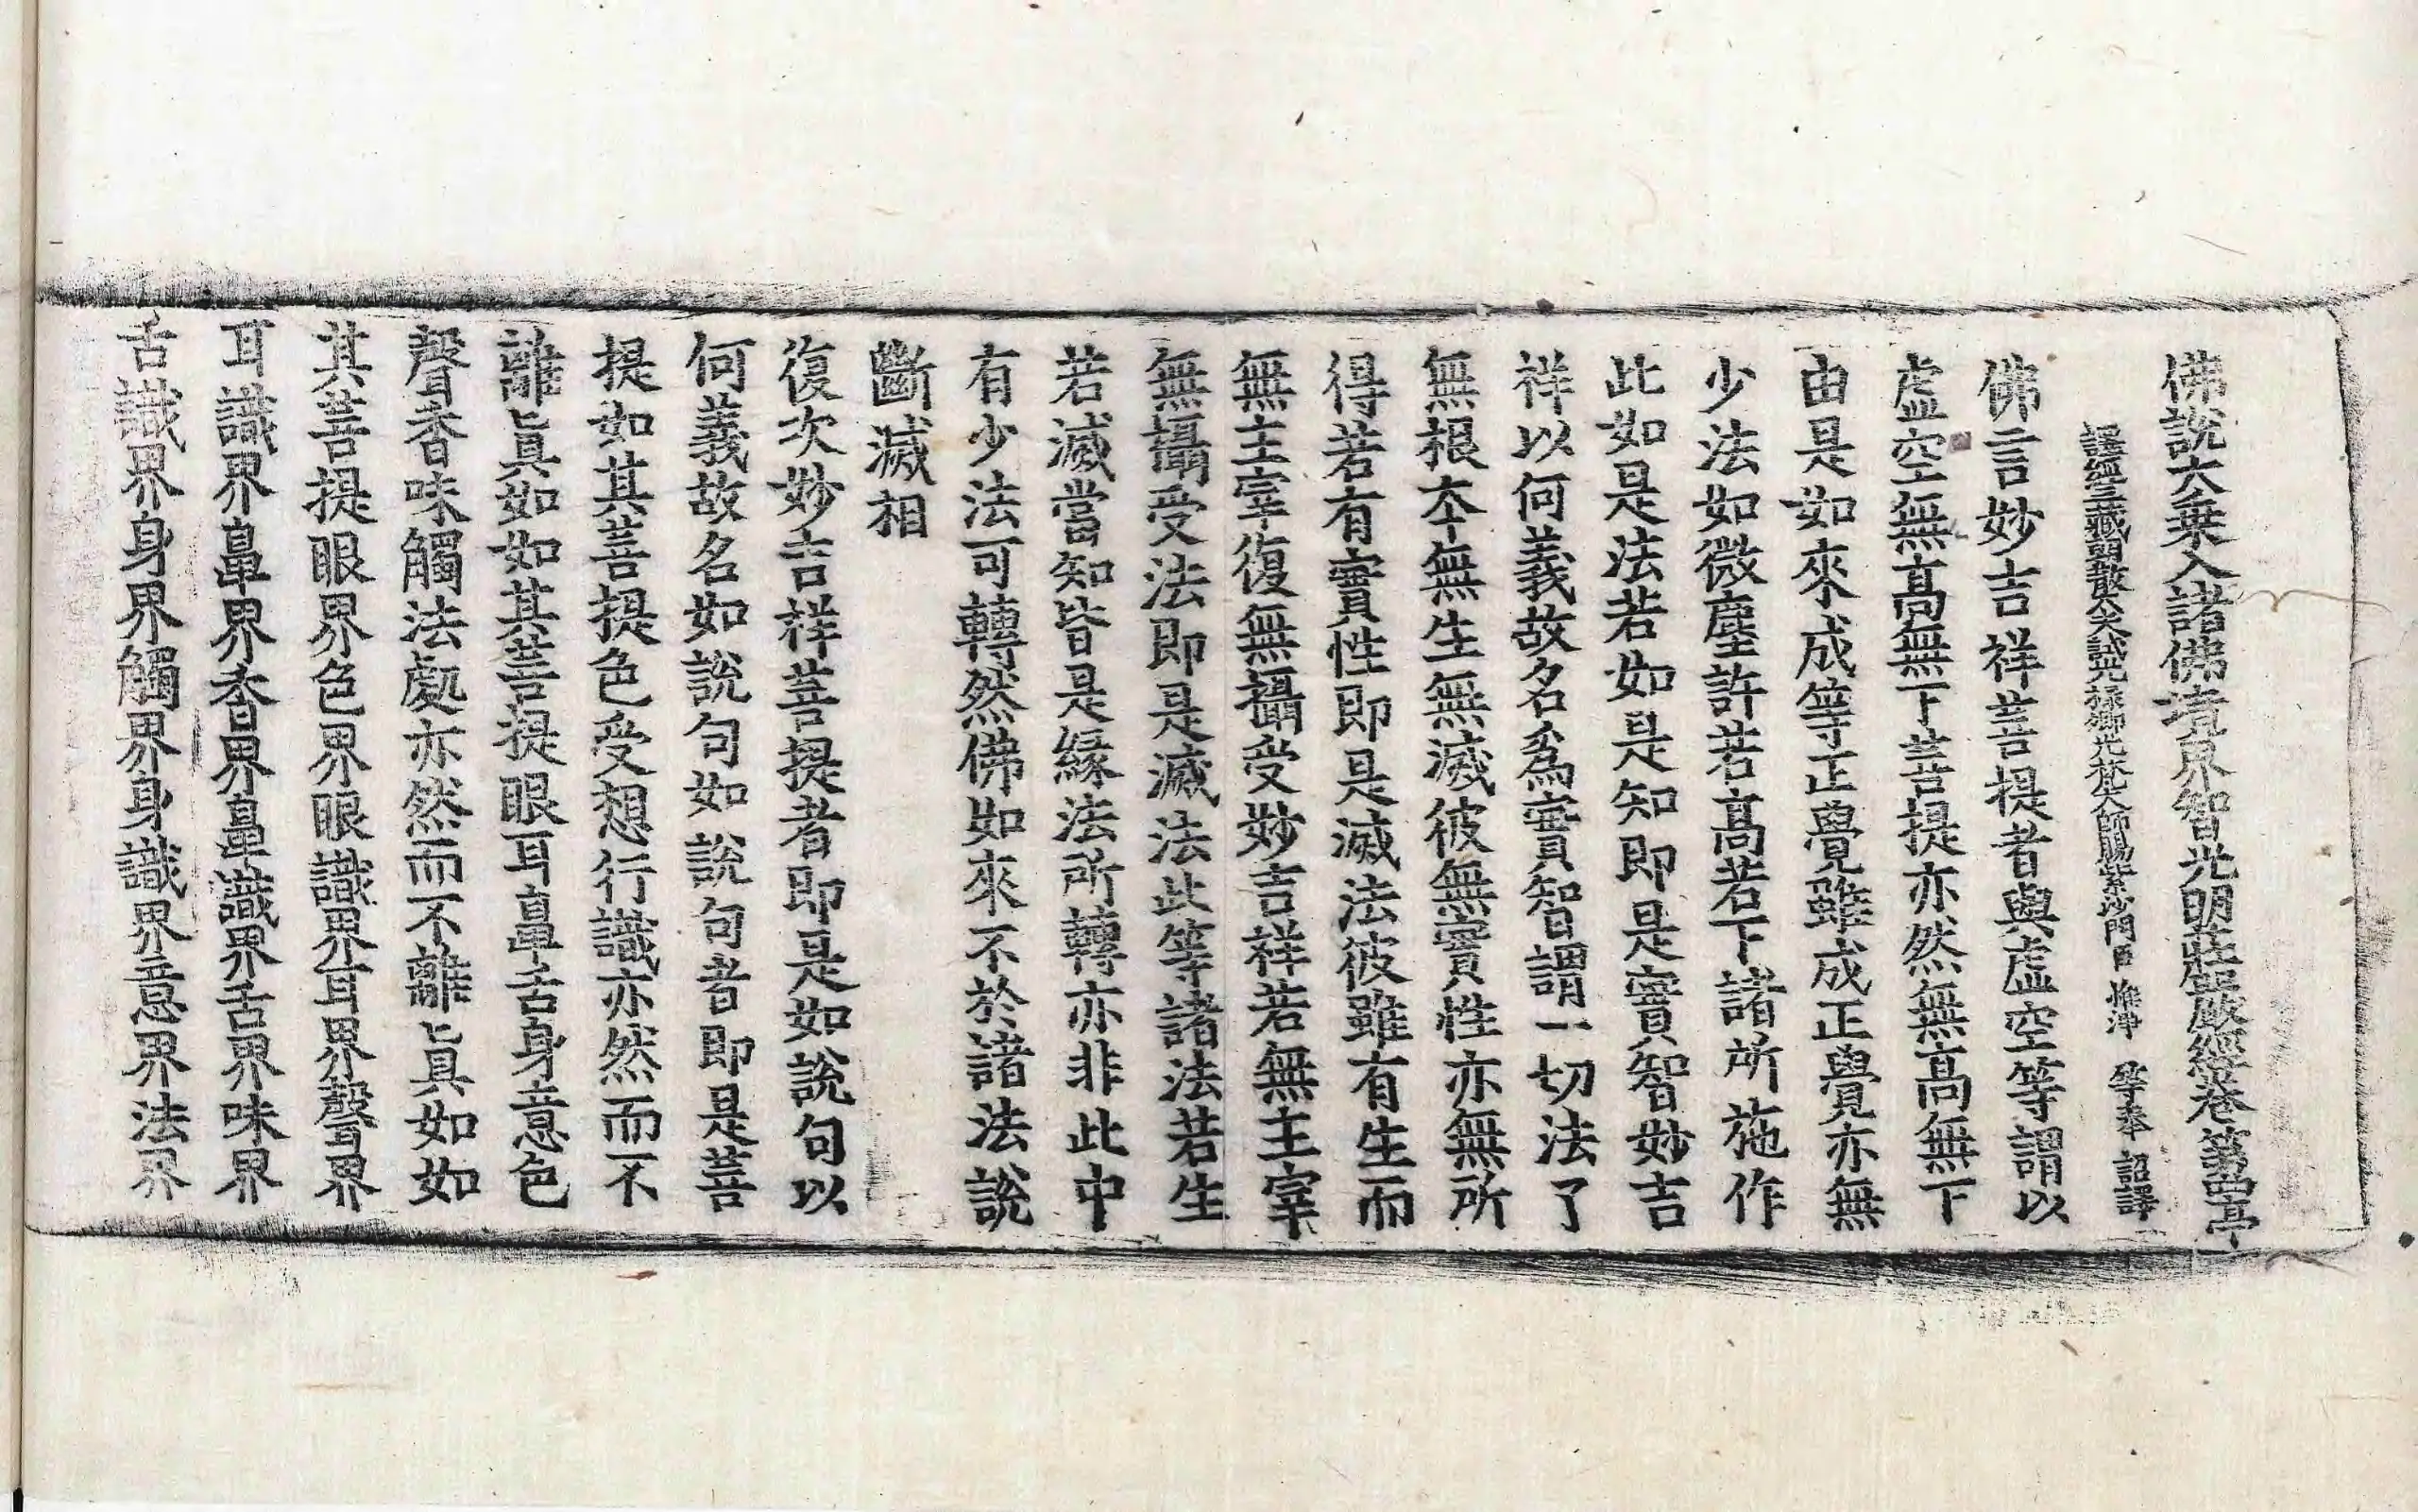 佛說大乗入諸佛境界智光明莊嚴經卷第四 亭
譯經三藏朝散大夫試光祿卿光梵大師賜紫沙門臣 惟淨 等奉 詔譯
佛言妙吉祥菩提者與虛空等謂以
虛空無髙無下菩提亦然無髙無下
由是如來成等正覺雖成正覺亦無
少法如微塵許若髙若下諸所施作
此如是法若如是知即是實智妙吉
祥以何義故名爲實智謂一切法了
無根本無生無滅彼無實性亦無所
得若有實性即是滅法彼雖有生而
無主宰復無攝受妙吉祥若無主宰
無攝受法即是滅法此等諸法若生
若滅當知皆是緣法所轉亦非此中
有少法可轉然佛如來不於諸法說
斷滅相
復次妙吉祥菩提者即是如說句以
何義故名如說句如說句者即是菩
提如其菩提色受想行識亦然而不
離眞如如其菩提眼耳鼻舌身意色
聲香味觸法處亦然而不離眞如如
其菩提眼界色界眼識界耳界聲界
耳識界鼻界香界鼻識界舌界味界
舌識界身界觸界身識界意界法界